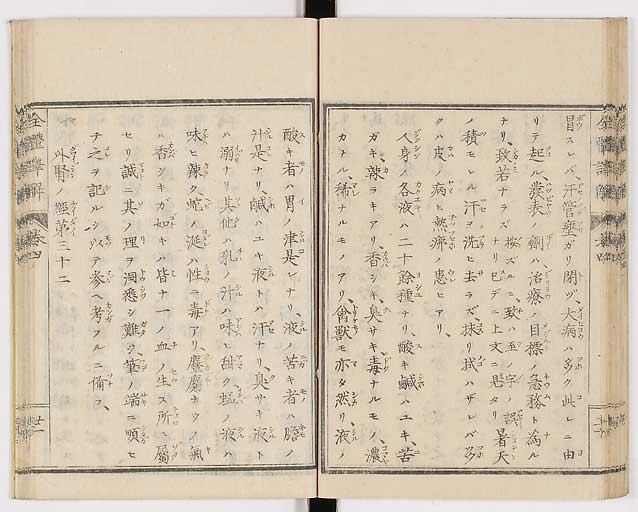 冒スレバ、汗管壅ガリ閉ヅ、大病ハ多ク此レニ由
リテ起ル、發表ノ劑ハ治療ノ目標ノ急務ト為ル
ナリ、致若ナラズ
按ズルニ、致ハ至ノ字ノ誤
ナリ已デニ上文ニ見タリ
暑天
ノ積モレル汗ヲ洗ヒ去ラズ、抹リ拭ハザレバ多
ク皮ノ病ヒ熱痱ノ患ヒアリ、
人身ノ各液ハ二十餘種ナリ、酸キ鹹ハユキ、苦
ガキ、辣ラキアリ、香シキ、臭サキ毒ナルモノ、濃
カナル、稀ナルモノアリ、禽獸モ亦タ然リ、液ノ
酸キ者ハ胃ノ津是レナリ、液ノ苦キ者ハ膽ノ
汁是ナリ、鹹ハユキ液トハ汗ナリ、臭サキ液ト
ハ溺ナリ其他ハ乳ノ汁ハ味ヒ甜ク、ノ液ハ
味ヒ辣ク、蛇ノ涎ハ性ニ毒アリ、ノ氣
ハ香シキガ如キハ皆ナ一ノ血ノ生ス所ニ屬
セリ誠ニ其ノ理ヲ洞悉シ難シ、筆ノ端ニ順ヒ
テ之ヲ記ルシ以テ参ヘ考フルニ備フ、
外腎ノ體第三十二
全體譯解
卷四